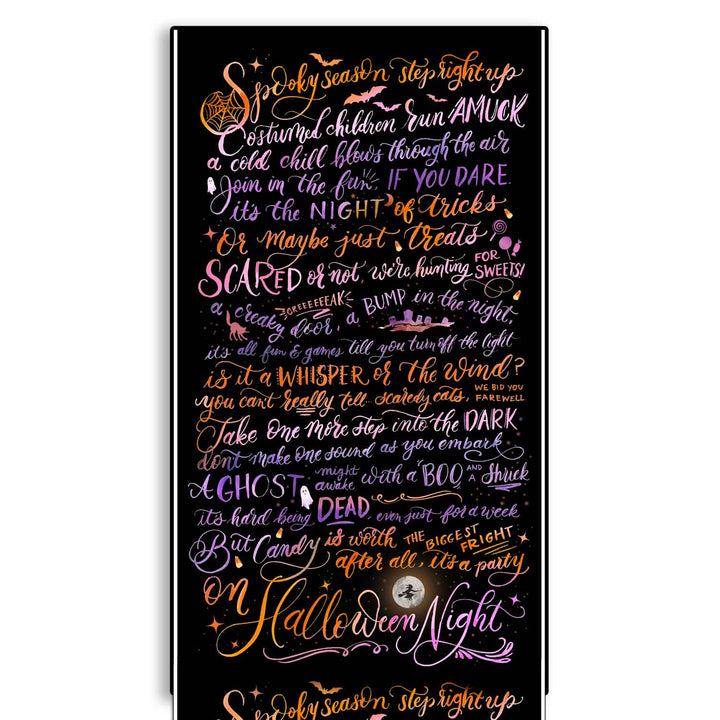 Spooky season step right up
Costumed children run AMUCK
a cold chill blows through the air
Join in the fun, IF YOU DARE
it's the NIGHT of tricks
Or maybe just treats
SCARED or not, we're hunting FOR SWEETS!
CREEEEEEAK
a creaky door, a BUMP in the night,
it's all fun & games till you turn off the light
is it a WHISPER or the wind?
you can't really tell... scaredy cats, WE BID YOU FAREWELL
Take One more step into the DARK
don't make one sound as you embark
A GHOST might awake with a BOO AND A Shriek
it's hard being DEAD, even just for a week
But Candy is worth THE BIGGEST FRIGHT
after all, it's a party
on Halloween Night
Spooky season step right up